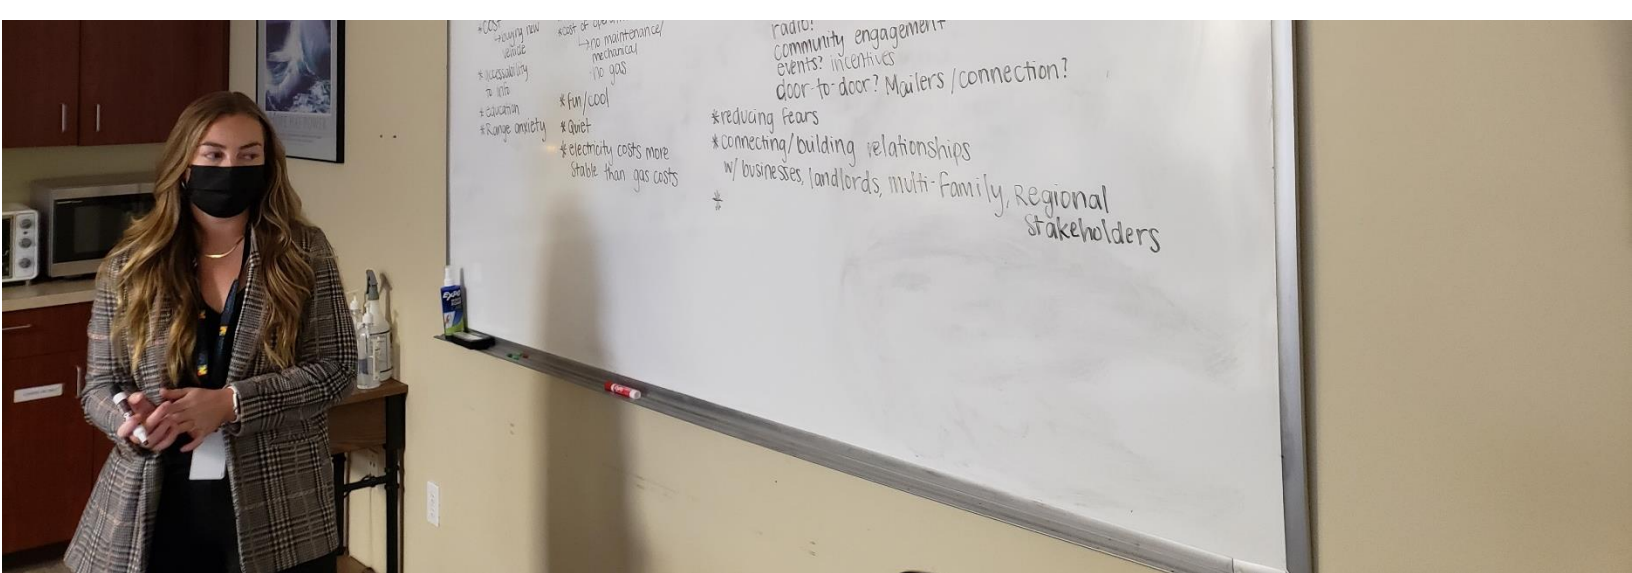 *cost
↳buying new
vehicle
*accessability
to info
*education
*Range anxiety
*cost of
↳no maintenance/
mechanical
no gas
*fun/cool
*Quiet
*electricity costs more
stable than gas costs
radio?
community engagement
events? incentives
door-to-door? Mailers/connection?
*reducing fears
*connecting/building relationships
w/ businesses, landlords, multi-family, Regional
Stakeholders
*
EXPO